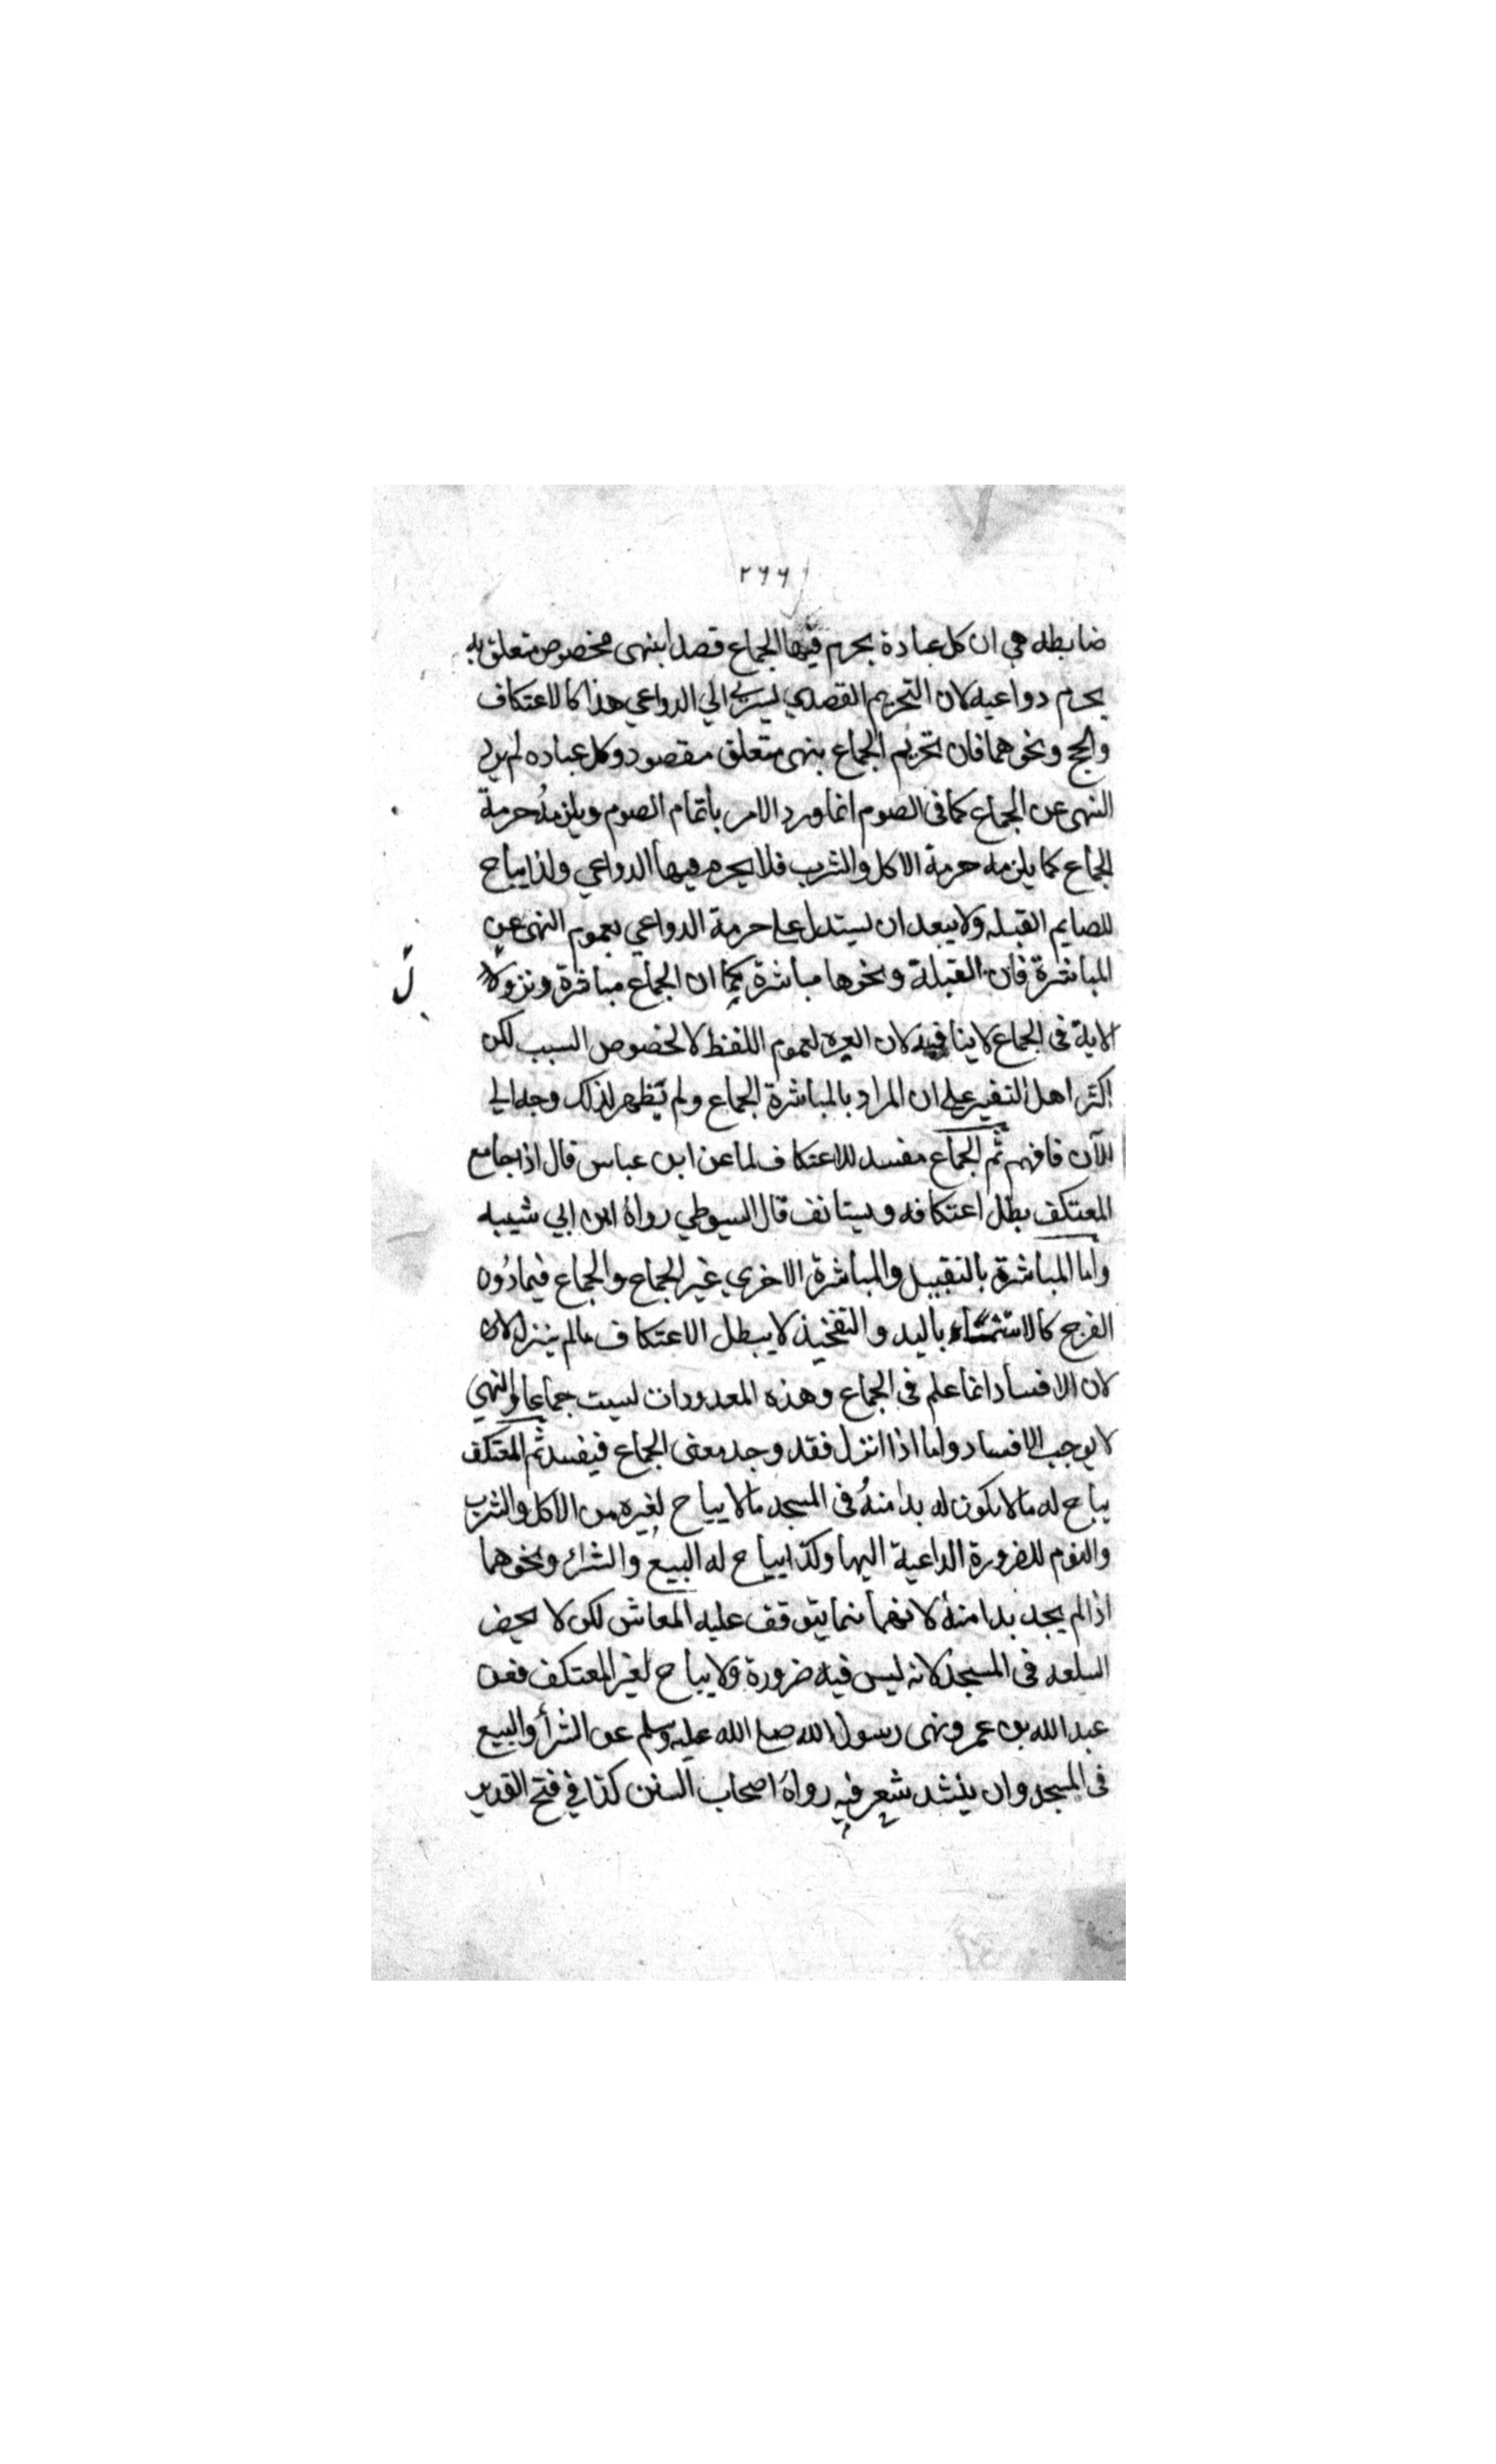 ٢٦٦
ضابطه هي ان كل عبادة يحرم فيها الجماع قصدا بنهى مخصوص متعلق به
يحرم دواعيه لان التحريم القصدي يسري الي الدواعي هذا كالاعتكاف
والحج ونحوهما فان تحريم الجماع بنهى متعلق مقصود وكل عباده لم يرد
النهى عن الجماع كما فى الصوم انما ورد الامر باتمام الصوم ويلزمهُ حرمة
الجماع كما يلزمه حرمة الاكل والشرب فلا يحرم فيها الدواعي ولذا يباح
للصايم القبله ولا يبعد ان يستدل على حرمة الدواعي بعموم النهى عن
المباشرة فان القبلة ونحوها مباشرة كما ان الجماع مباشرة ونزول
الاية فى الجماع لا ينافيه لان العبرة لعموم اللفظ لا لخصوص السبب لكن
اكثر اهل التفسير على ان المراد بالمباشرة الجماع ولم يظهر لذلك وجه الي
الآن فافهم ثم الجماع مفسد للاعتكاف لما عن ابن عباس قال اذا جامع
المعتكف بطل اعتكافه ويستانف قال السيوطي رواهُ ابن ابي شيبه
واما المباشرة بالتقبيل والمباشرة الاخري غير الجماع والجماع فيما دُون
الفرج كالاستمناء باليد والتفخيذ لا يبطل الاعتكاف مالم ينزل لان
لان الافساد انما علم فى الجماع وهذه المعدودات ليست جماعا والنهي
لا يوجب الافساد واما اذا انزل فقد وجد معنى الجماع فيفسد ثم المعتكف
يباح له ما لا يكون له بدا منهُ فى المسجد ما لا يباح لغيره من الاكل والشرب
والنوم للضرورة الداعية اليها وكذا يباح له البيع والشراء ونحوهما
اذا لم يجد بدا منهُ لانهما مما يتوقف عليه المعاش لكن لا يحضر
السلعه فى المسجد لانه ليس فيه ضرورة ولا يباح لغير المعتكف فعن
عبد الله بن عمرو نهى رسول الله صلى الله عليه وسلم عن الشرأ والبيع
فى المسجد وان ينشد شعر فيه رواهُ اصحاب السنن كذا في فتح القدير